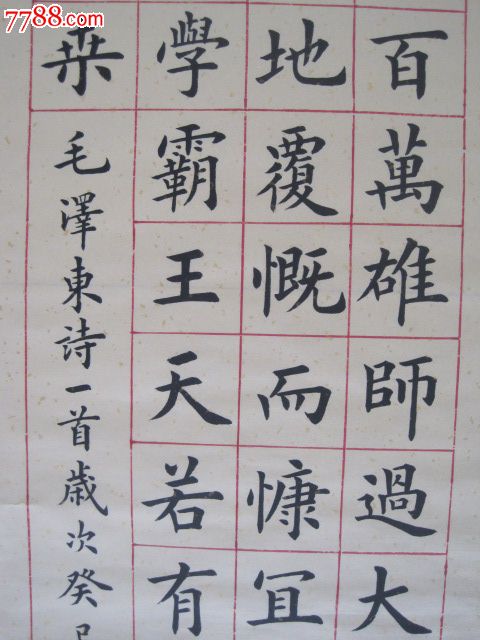 7788.com
百萬雄師過大
地覆慨而慷冝
學霸王天若有
桒
毛澤東詩一首歳次癸